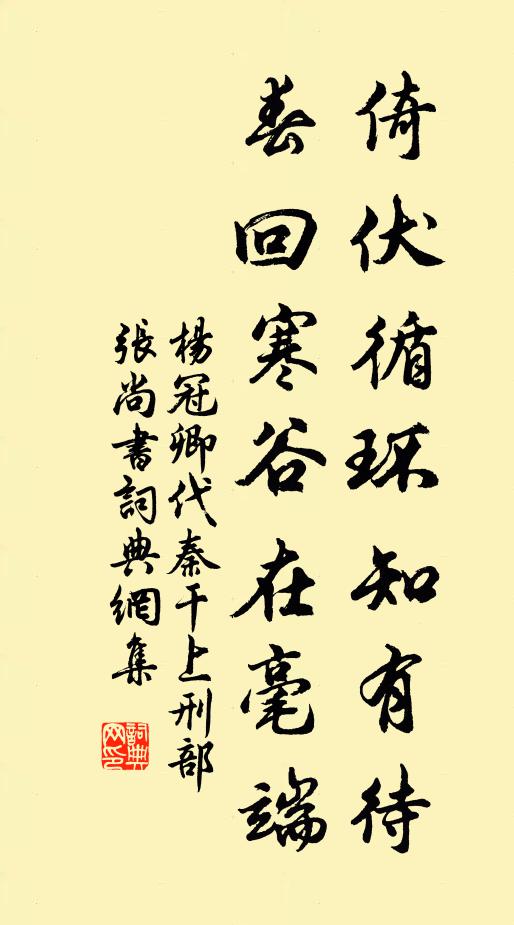 倚伏循环知有待
春回寒谷在毫端
楊冠卿代秦干上刑部
張尚書詞典網集
詞典
网印